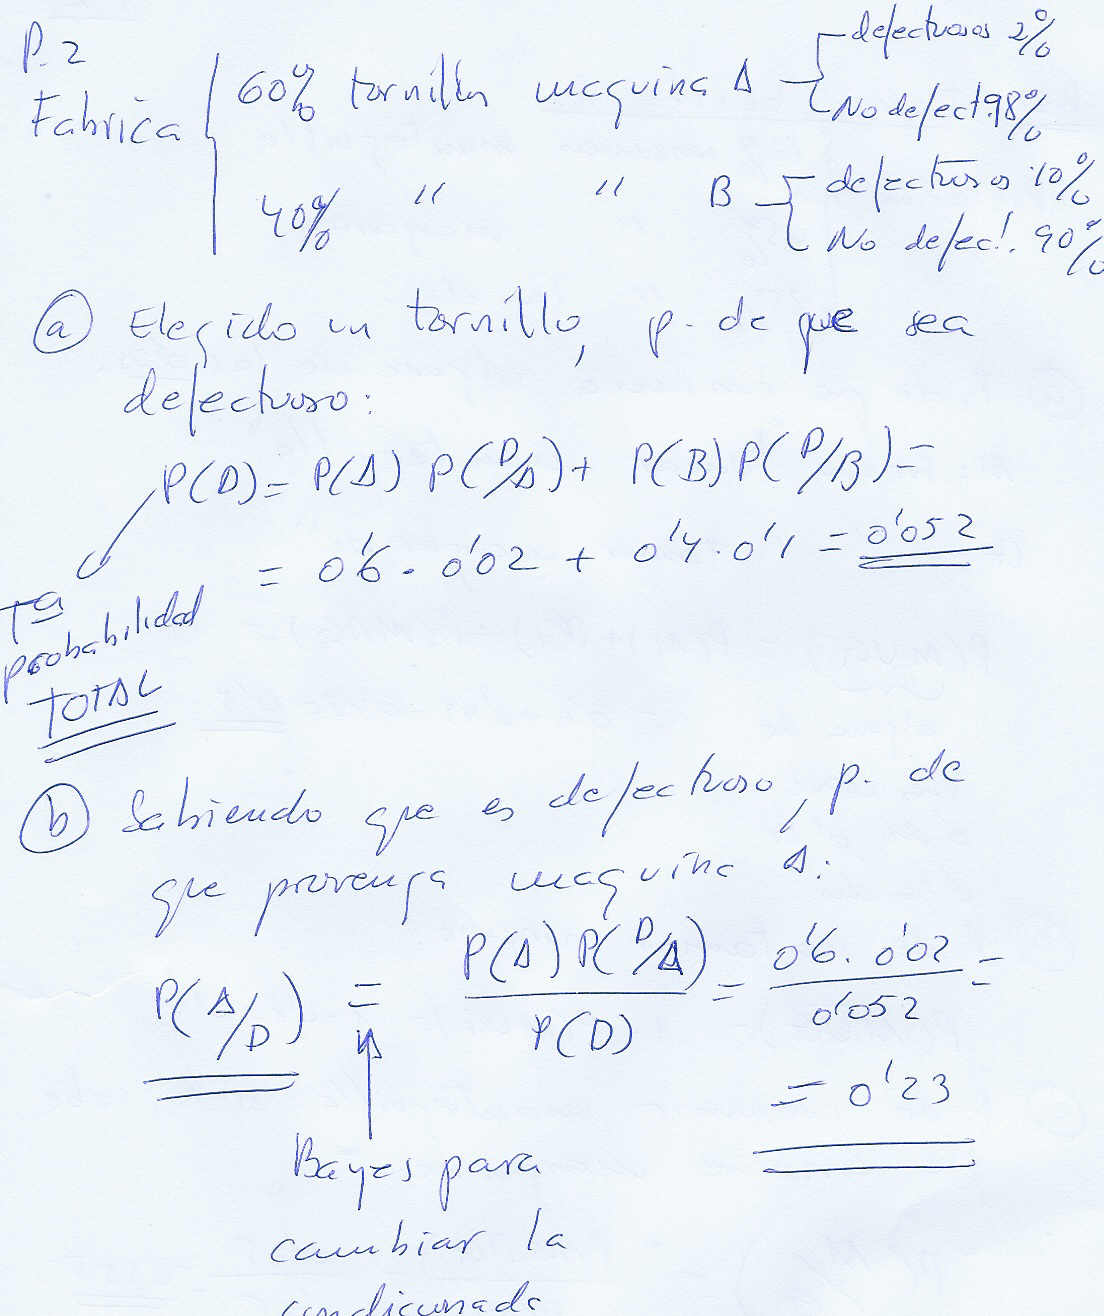 P.2
Fabrica
60% tornillos maquina A
defectuosos 2%
No defect. 98%
40% " " B
defectuosos 10%
No defect. 90%
ⓐ Elegido un tornillo, p. de que sea
defectuoso:
P(D) = P(A) P(D/A) + P(B) P(D/B) =
= 0'6 · 0'02 + 0'4 · 0'1 = 0'052
Tª
probabilidad
TOTAL
ⓑ Sabiendo que es defectuoso, p. de
que provenga maquina A:
P(A/D) = P(A) P(D/A) / P(D) = 0'6 · 0'02 / 0'052 =
= 0'23
Bayes para
cambiar la
condicionada